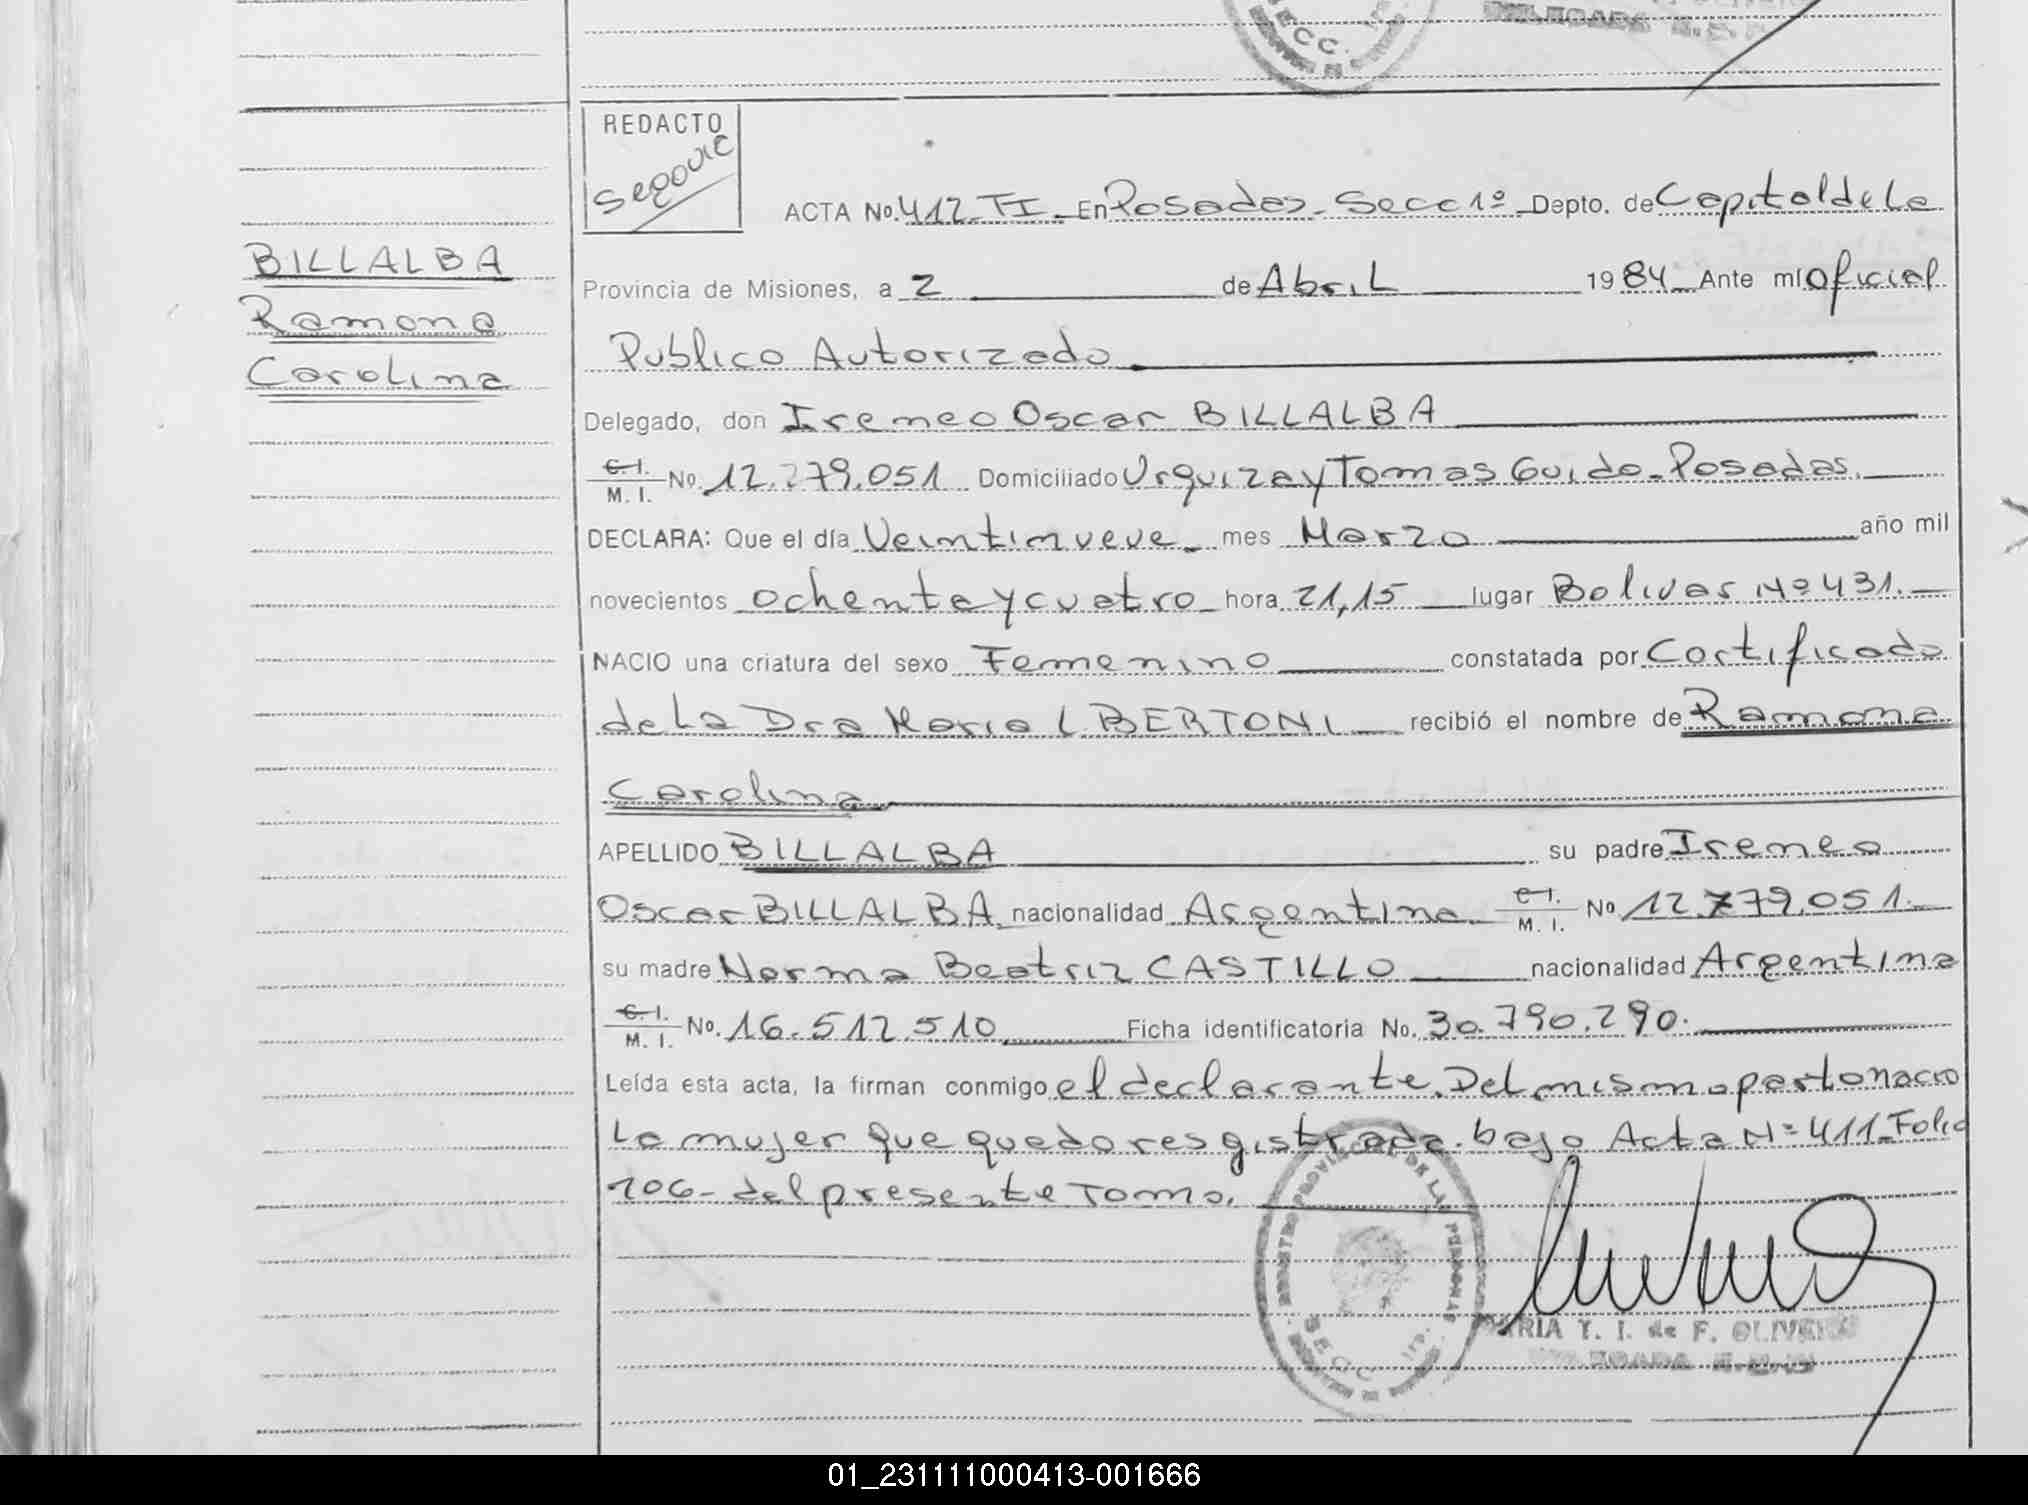 SECC. 1ra.
REDACTO
Segovic
ACTA No. 412_TI_ En Posadas_ Secc 1º_ Depto. de Capital de La
BILLALBA
Provincia de Misiones, a 2 de Abril 1984_ Ante mí Oficial
Ramona
Publico Autorizado
Carolina
Delegado, don Ireneo Oscar BILLALBA
C. I. / M. I. No. 12.779.051 Domiciliado Urquiza y Tomas Guido_Posadas.
DECLARA: Que el día Veintinueve_ mes Marzo año mil
novecientos ochenta y cuatro hora 21,15 lugar Bolivar Nº 431.
NACIO una criatura del sexo Femenino constatada por Certificado
de La Dra Maria L BERTONI recibió el nombre de Ramona
Carolina
APELLIDO BILLALBA su padre Ireneo
Oscar BILLALBA nacionalidad Argentina. C. I. / M. I. No 12.779.051.
su madre Norma Beatriz CASTILLO nacionalidad Argentina
C. I. / M. I. No. 16.512.510 Ficha identificatoria No. 30.790.290.
Leída esta acta, la firman conmigo el declarante. Del mismo parto nacio
La mujer que quedo resgistrada bajo Acta Nº 411_Folio
206_ del presente Tomo.
REGISTRO PROVINCIAL DE LAS PERSONAS
SECC. 1ra.
MARIA T. I. de F. OLIVERA
DELEGADA
01_231111000413-001666